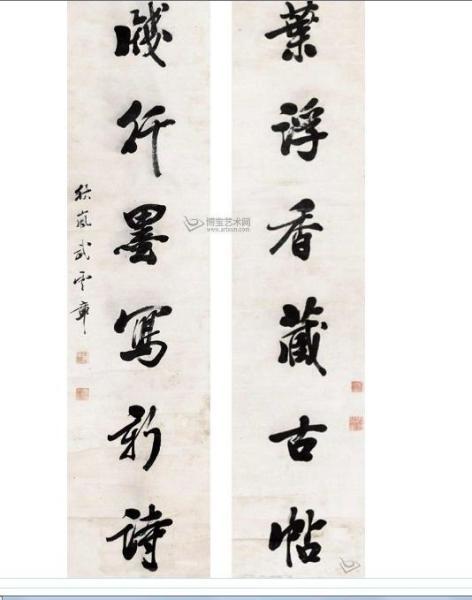 葉浮香藏古帖
牋行墨寫新詩
秋嵐武雲章
博宝艺术网
www.artxun.com